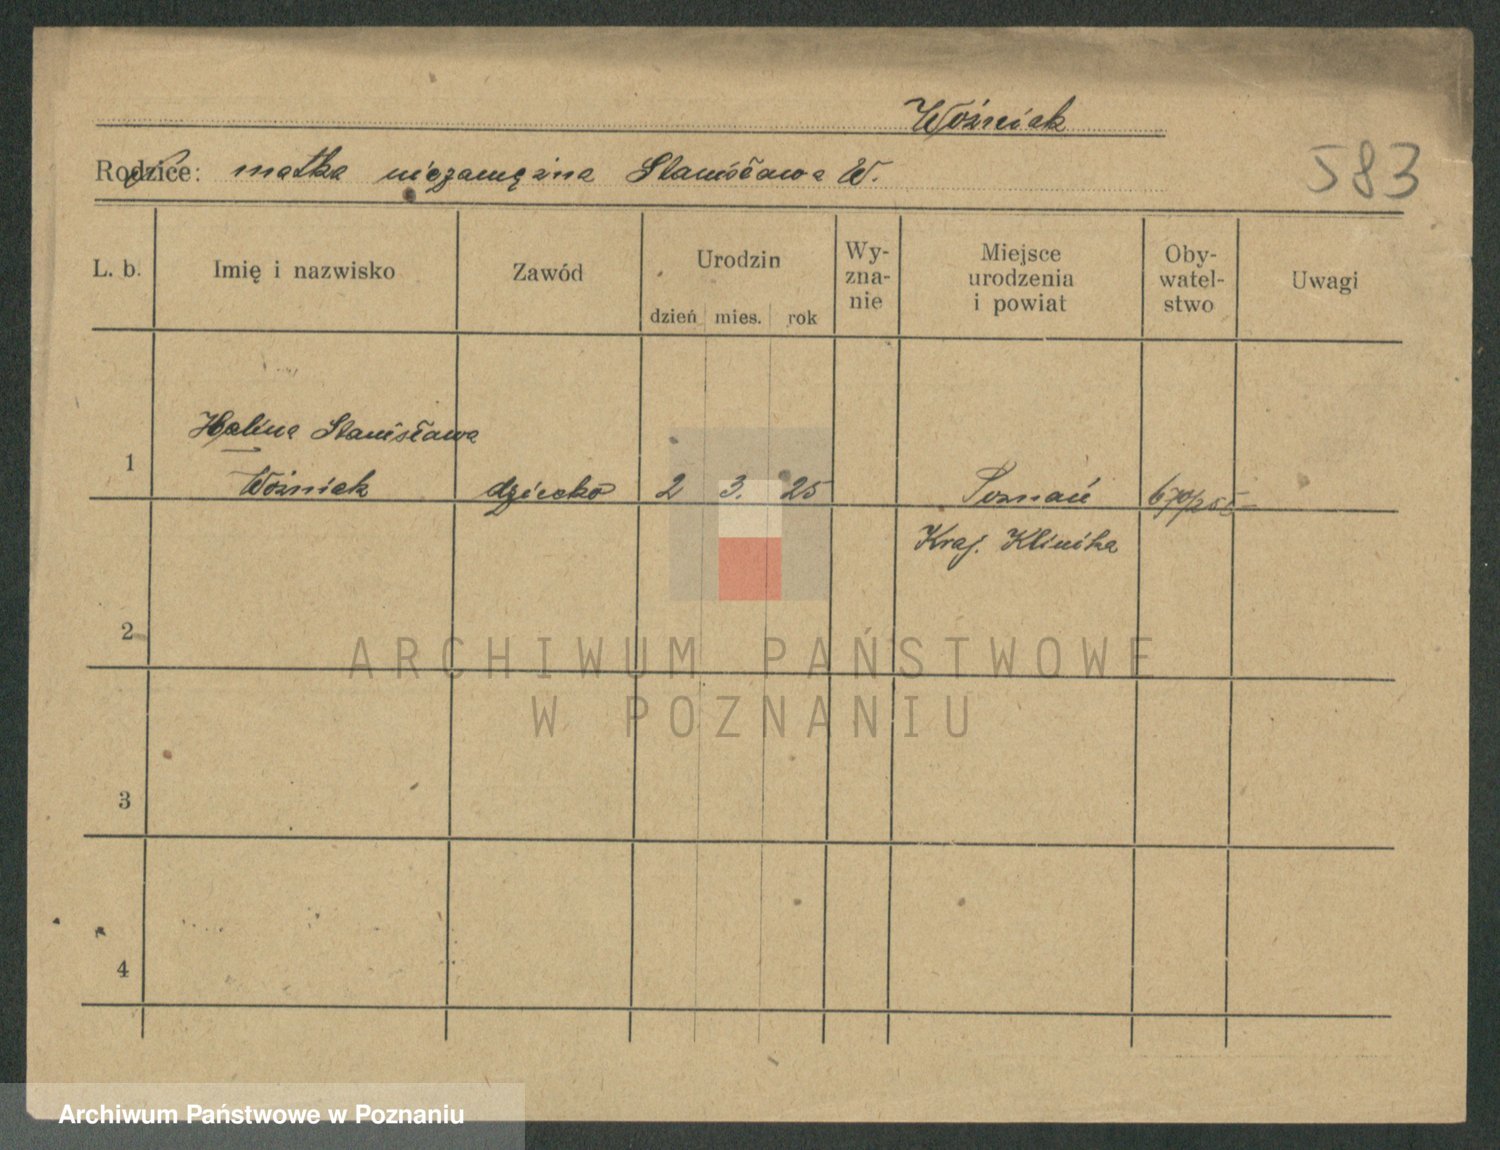 Woźniak
Rodzice: matka niezamężna Stanisława W.
583
L. b.
Imię i nazwisko
Zawód
Urodzin
dzień mies. rok
Wy-
zna-
nie
Miejsce
urodzenia
i powiat
Oby-
watel-
stwo
Uwagi
Halina Stanisława
1
Woźniak dziecko 2 3. 25 Poznań
Kraj. Klinika
2
3
4
ARCHIWUM PAŃSTWOWE
W POZNANIU
Archiwum Państwowe w Poznaniu